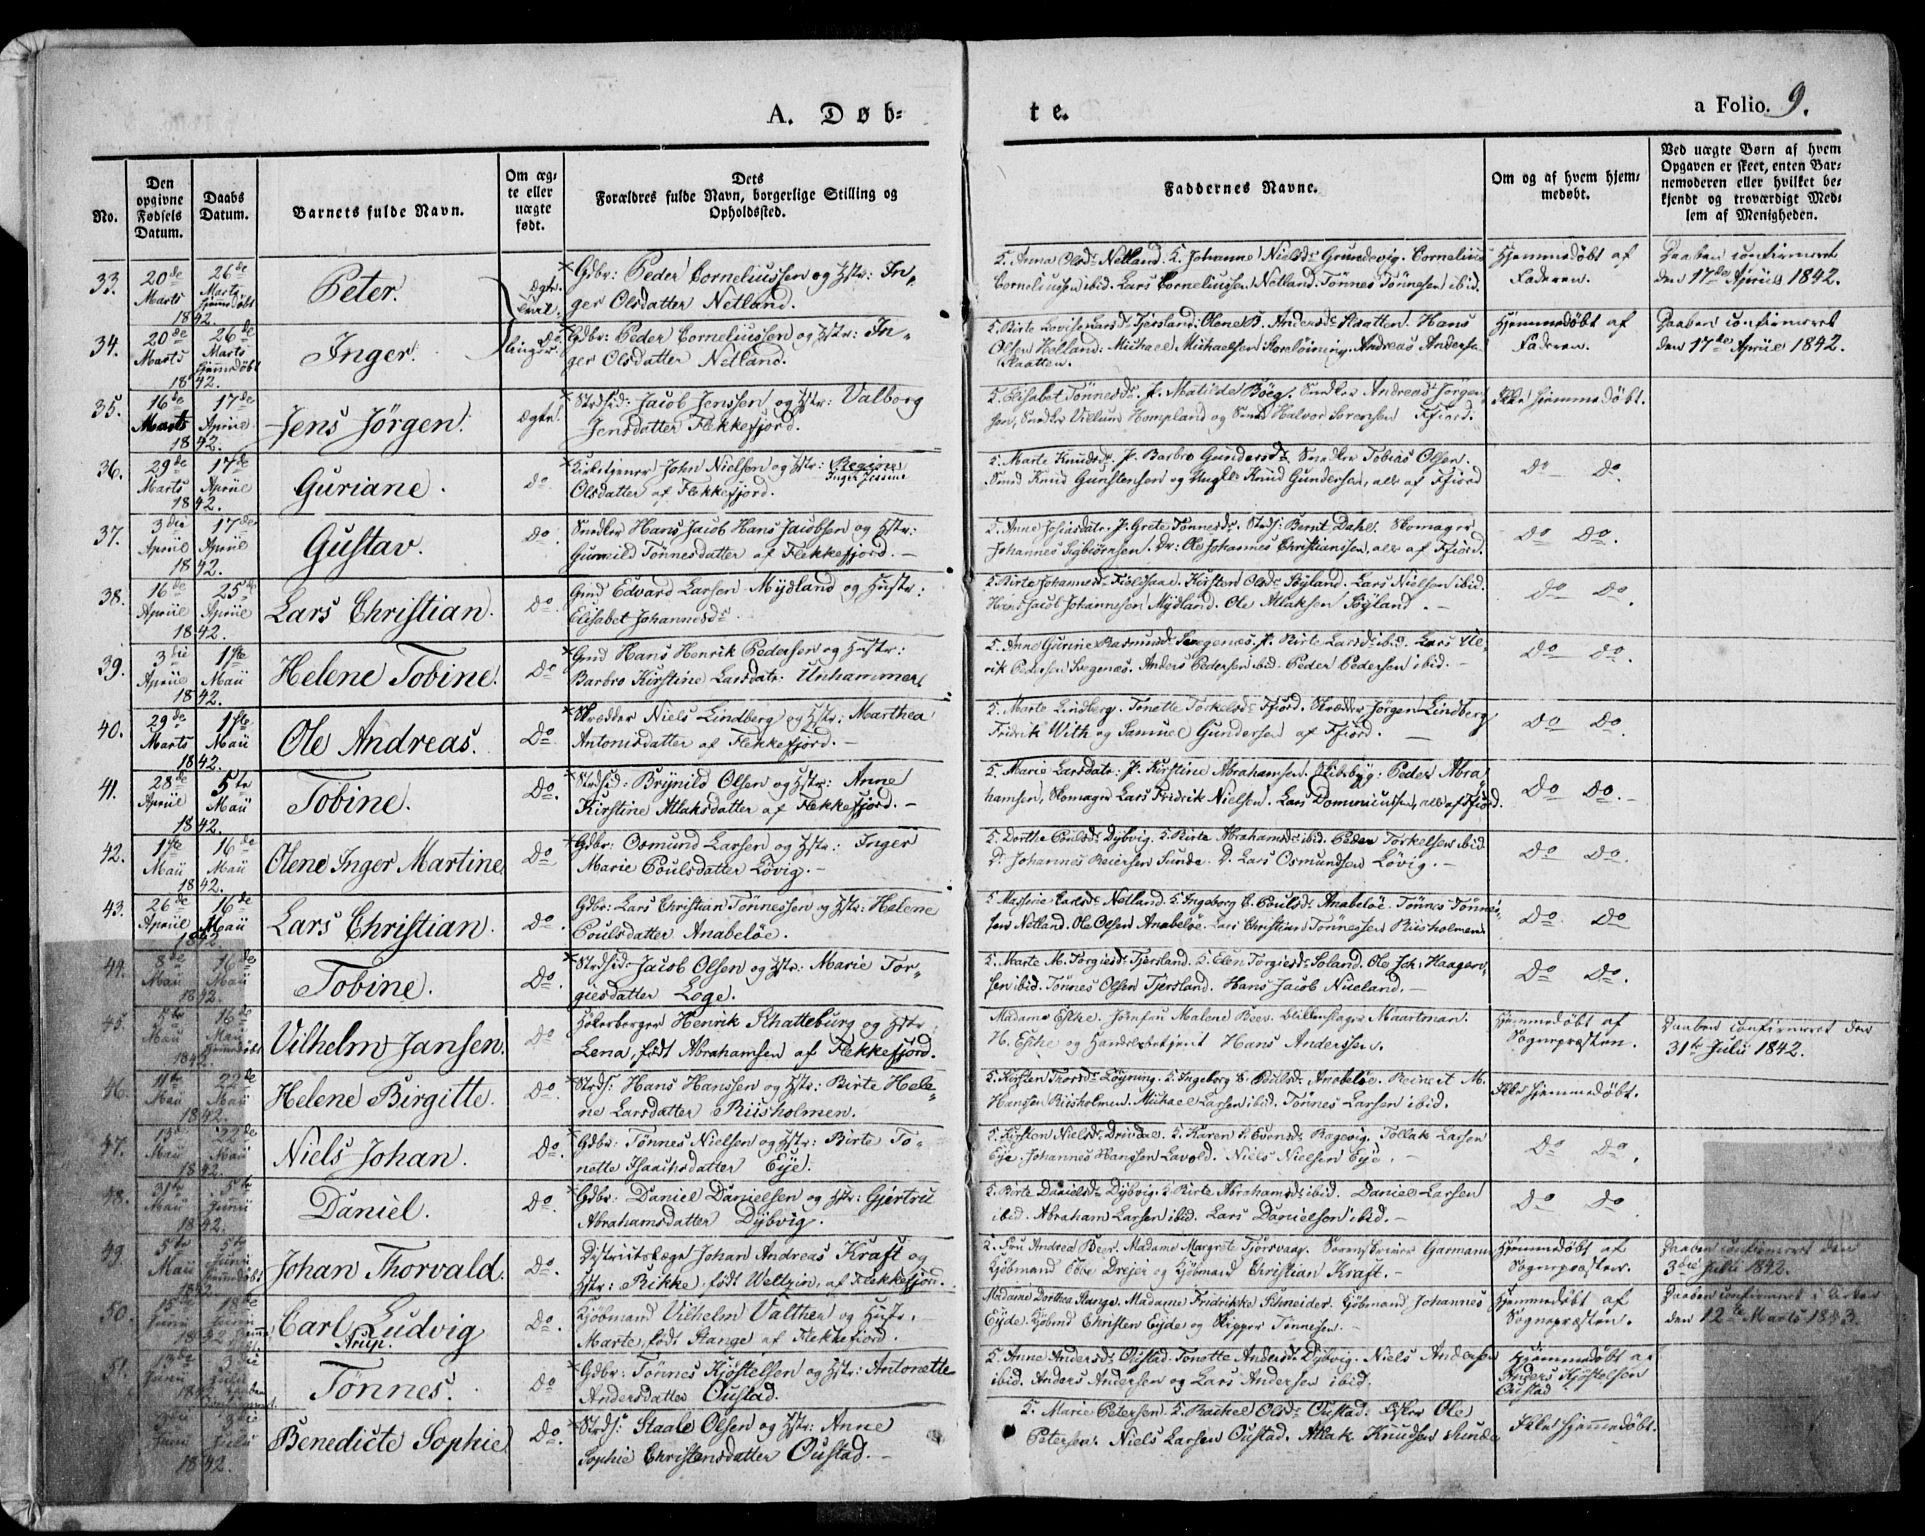 A. Døb-
te.
a Folio. 9.
No.
Den opgivne Fødsels Datum.
Daabs Datum.
Barnets fulde Navn.
Om ægte eller uægte født.
Dets Forældres fulde Navn, borgerlige Stilling og Opholdssted.
Faddernes Navne.
Om og af hvem hjemmedøbt.
Ved uægte Børn af hvem Opgaven er skeet, enten Barnemoderen eller hvilket bekjendt og troværdigt Medlem af Menigheden.
33. 20de Marts 1842. 26de Marts hjemmedøbt Peter. Ægte
Gdbr: Peder Corneliussen og Hstr: In-
ger Olsdatter Netland.
Cornelius
Corneliussen ibid. Lars Corneliussen Netland. Tønnes Tønnesen ibid.
Hjemmedøbt af
Faderen.
Daaben confirmeret
den 17de Apriil 1842.
34. 20de Marts 1842. 26de Marts hjemmedøbt Inger. Do
Gdbr: Peder Corneliussen og Hstr: In-
ger Olsdatter Netland.
Hans
Olsen Helland. Michael Michaelsen Andreas Anderse
Slaatten.
Hjemmedøbt af
Faderen.
Daaben confirmeret
den 17de Apriil 1842.
35. 16de Marts 1842. 17de Apriil Jens Jörgen. Ægte
Strdsid: Jacob Jenssen og Hstr: Valborg
Jensdatter Flekkefjord.
Elisabet Tønnesd. Matilde Böeg. Snedker Andreas Jørgen-
sen, Snedker Villum Hompland og Halvor Sørensen Ffiord.
Ikke hjemmedøbt.
36. 29de Marts 1842. 17de Apriil Guriane. Do
John Nielsen og Hstr:
Olsdatter af Flekkefjord.
Marte Knudsd. Barbro Gundersd. Snedker Tobias Olsen.
Smed Knud Gunstensen og Knud Gundersen, alle af Ffiord
Do Do.
37. 3die Apriil 1842. 17de Apriil Gustav. Do
Snedker Hans Jacob Hans Jacobsen og Hstr:
Gunnild Tønnesdatter af Flekkefjord. -
Grete Tønnesd. Strds: Bernt Dahl. Skomager
Johannes Sigbiørnsen. Ole Johannes Christianssen, alle af Ffiord.
Do Do.
38. 16de Apriil 1842. 25de Apriil Lars Christian. Do
Gmd Edvard Larsen Mydland og Hustr:
Elisabet Johannesd.
Birte Johannesd. Kirsten Olsd. Lars Nielsen ibid.
Hans Jacob Johannesen Mydland. Ole Atlaksen
Do Do.
39. 3die Apriil 1842. 1ste Maii Helene Tobine. Do
Gmd Hans Henrik Pedersen og Hustr:
Barbro Kirstine Larsdatr: Unhammer.
Anne Gurine Rasmusd. Birte Larsd. ibid. Lars
Pedersen Anders Pedersen ibid. Peder Pedersen ibid. -
Do Do.
40. 29de Marts 1842. 1ste Maii Ole Andreas. Do
Skrædder Niels Lindberg og Hstr: Marthea
Antonisdatter af Flekkefjord. -
Marte Lindberg. Tonette Torkelsd. Ffiord. Skrædder Jørgen Lindberg
Fridrik With og Samuel Gundersen af Ffiord.
Do Do.
41. 28de Apriil 1842. 5te Maii Tobine. Do.
Strdsid: Brynild Olsen og Hstr: Anne
Kirstine Atlaksdatter af Flekkefjord. -
Marie Larsdatr: Kirstine Abrahamsen. Skibsbyg: Peder Abra-
hamsen, Skomager Lars Fridrik Nielsen. Lars Dominicussen, alle af Ffiord.
Do Do.
42. 1ste Maii 1842. 16de Maii Olene Inger Martine. Do
Gdbr: Osmund Larsen og Hstr: Inger
Marie Poulsdatter Lövig. -
Dorthe Poulsd. Dybvig. Birte Abrahamsd. ibid. Peder Torkelsen ibid
Johannes Sunde. Lars Osmundsen Lövig. -
Do Do.
43. 26de Apriil 1842 16de Maii Lars Christian. Do
Gdbr: Lars Christian Tønnessen og Hstr: Helene
Poulsdatter Anabelöe.
Netland. Ingeborg Poulsd. Anabelöe. Tønnes Tønnes-
sen Netland. Ole Olsen Anabelöe. Lars Christian Tønnessen Riisholmen
Do Do
44. 8de Maii 1842. 16de Maii Tobine. Do.
Strdsid: Jacob Olsen og Hstr: Marie Tor-
giesdatter Loge.
Marte M. Torgiesd. Tjersland. Elen Torgiesd. Ole Joh: Haagen-
sen ibid. Tønnes Olsen Tjersland. Hans Jacob Nueland. -
Do Do.
45. 5te Maii 1842. 16de Maii hjemmedøbt Vilhelm Jansen. Do
Henrik Schatteburg og Hstr
Lena, født Abrahamsen af Flekkefjord.
Madame Esche. Jomfru Malene Beer. Maartman.
H. Esche og Handelsbetjent Hans Anderssen.
Hjemmedøbt af
Sognepræsten.
Daaben confirmeret den
31te Julii 1842.
46. 11te Maii 1842. 22de Maii Helene Birgitte. Do.
Strds: Hans Hanssen og Hstr: Birte Hele-
ne Larsdatter Riisholmen.
Kirsten Thorsd. Löyning. Ingeborg Anabelöe. Reinert M.
Hansen Riisholmen. Michael Larsen ibid. Tønnes Larsen ibid.
Ikke hjemmedøbt.
47. 13de Maii 1842. 22de Maii Niels Johan. Do.
Gdbr: Tønnes Nielsen og Hstr: Birte To-
nette Isaachsdatter Eye.
Kirsten Nielsd. Drivdal. Karen Evensd. Bagevig. Tollak Larsen
Eye. Johannes Hanssen Lavold. Niels Nielsen Eye. -
Do Do.
48. 31te Maii 1842. 5te Junii Daniel. Do.
Gdbr: Daniel Danielsen og Hstr: Gjertru
Abrahamsdatter Dybvig.
Birte Danielsd. Dybvig. Birte Abrahamsd. ibid. Daniel Larsen
ibid. Abraham Larsen ibid. Lars Danielsen ibid. -
Do Do
49. 5te Maii 1842 5te Junii hjemmedøbt Johan Thorvald. Do.
Districtslæge Johan Andreas Kraft og
Hstr: Rikke, født Weltzin, af Flekkefjord.
Fru Andrea Beer. Madame Margrete Tjorsvaag. Sorenskriver Garmann
Kjöbmand Drejer og Kjöbmand Christian Kraft. -
Hjemmedøbt af
Sognepræsten.
Daaben confirmeret den
3die Julii 1842.
50. 15de Junii 1842 18de Junii Carl Ludvig Strup. Do.
Kjöbmand Vilhelm Valther og Hustr.
Marte, født Stange af Flekkefjord.
Madame Dorthea Stange. Madame Fridrikke Schneider. Kjöbmand Johannes
Eyde. Kjöbmd Christen Eyde og Skipper Tønnesen. -
Hjemmedøbt af
Sognepræsten.
Daaben confirmeret i Kirken
den 12te Marts 1843.
51. 13de Junii 1842 3die Julii Tönnes. Do
Gdbr: Tønnes Kjöstelsen og Hstr: Antonette
Andersdatter Oustad.
Anne Andersd. Oustad. Tonette Andersd. Dybvig. Niels Andersen
ibid. Anders Andersen og Lars Andersen ibid.
Hjemmedøbt af
Anders Kjöstolsen
Oustad
Junii 1842. 3die Julii Benedicte Sophie. Do.
Strds: Staale Olsen og Hstr: Anne
Sophie Christensdatter Oustad. -
Marie Petersen. Rachel Olsd. Oustad. Ole
Petersen. Niels Larsen Oustad. Atlak Knudsen Sunde
Ikke hjemmedøbt.